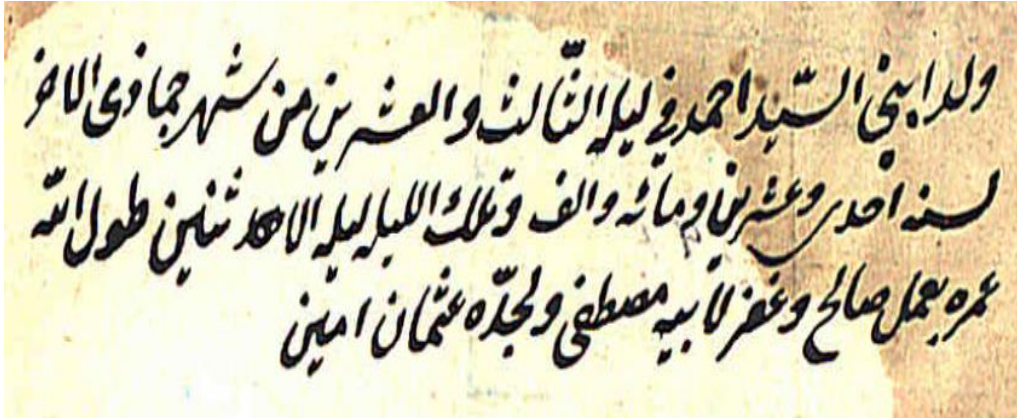 ولد ابني السّيد احمد في ليله الثّالث والعشرين من شهر جماذى الاخر
لسنه احدى وعشرين ومائه والف وتلك الليله ليله الاثنين طول الله
عمره بعمل صالح وغفر لابيه مصطفى ولجدّه عثمان امين